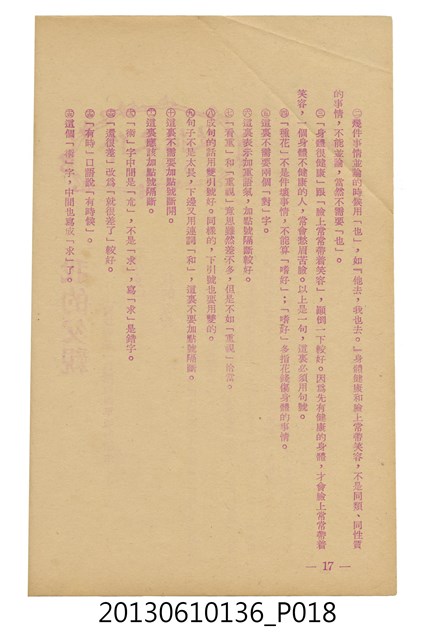 ㊁幾件事情並論的時候用「也」，如「他去，我也去。」身體健康和臉上常帶笑容，不是同類、同性質
的事情，不能並論，當然不需要「也」。
㊂「身體很健康」跟「臉上常常帶着笑容」，顛倒一下較好。因為先有健康的身體，才會臉上常常帶着
笑容，一個身體不健康的人，常會愁眉苦臉。以上是一句，這裏必須用句號。
㊃「種花」不是件壞事情，不能算「嗜好」；「嗜好」多指花錢傷身體的事情。
㊄這裏不需要兩個「對」字。
㊅這裏表示加重語氣，加點號隔斷較好。
㊆「看重」和「重視」意思雖然差不多，但是不如「重視」恰當。
㊇成句的話用雙引號好。同樣的，下引號也要用雙的。
㊈句子不是太長，下邊又用連詞「和」，這裏不要加點號隔斷。
㊉這裏不需要加點號隔開。
這裏應該加點號隔斷。
「術」字中間是「朮」，不是「求」，寫「求」是錯字。
「還很差」改為「就很差了」較好。
「有時」口語說「有時候」。
這個「術」字，中間也寫成「求」了。
— 17 —
20130610136_P018